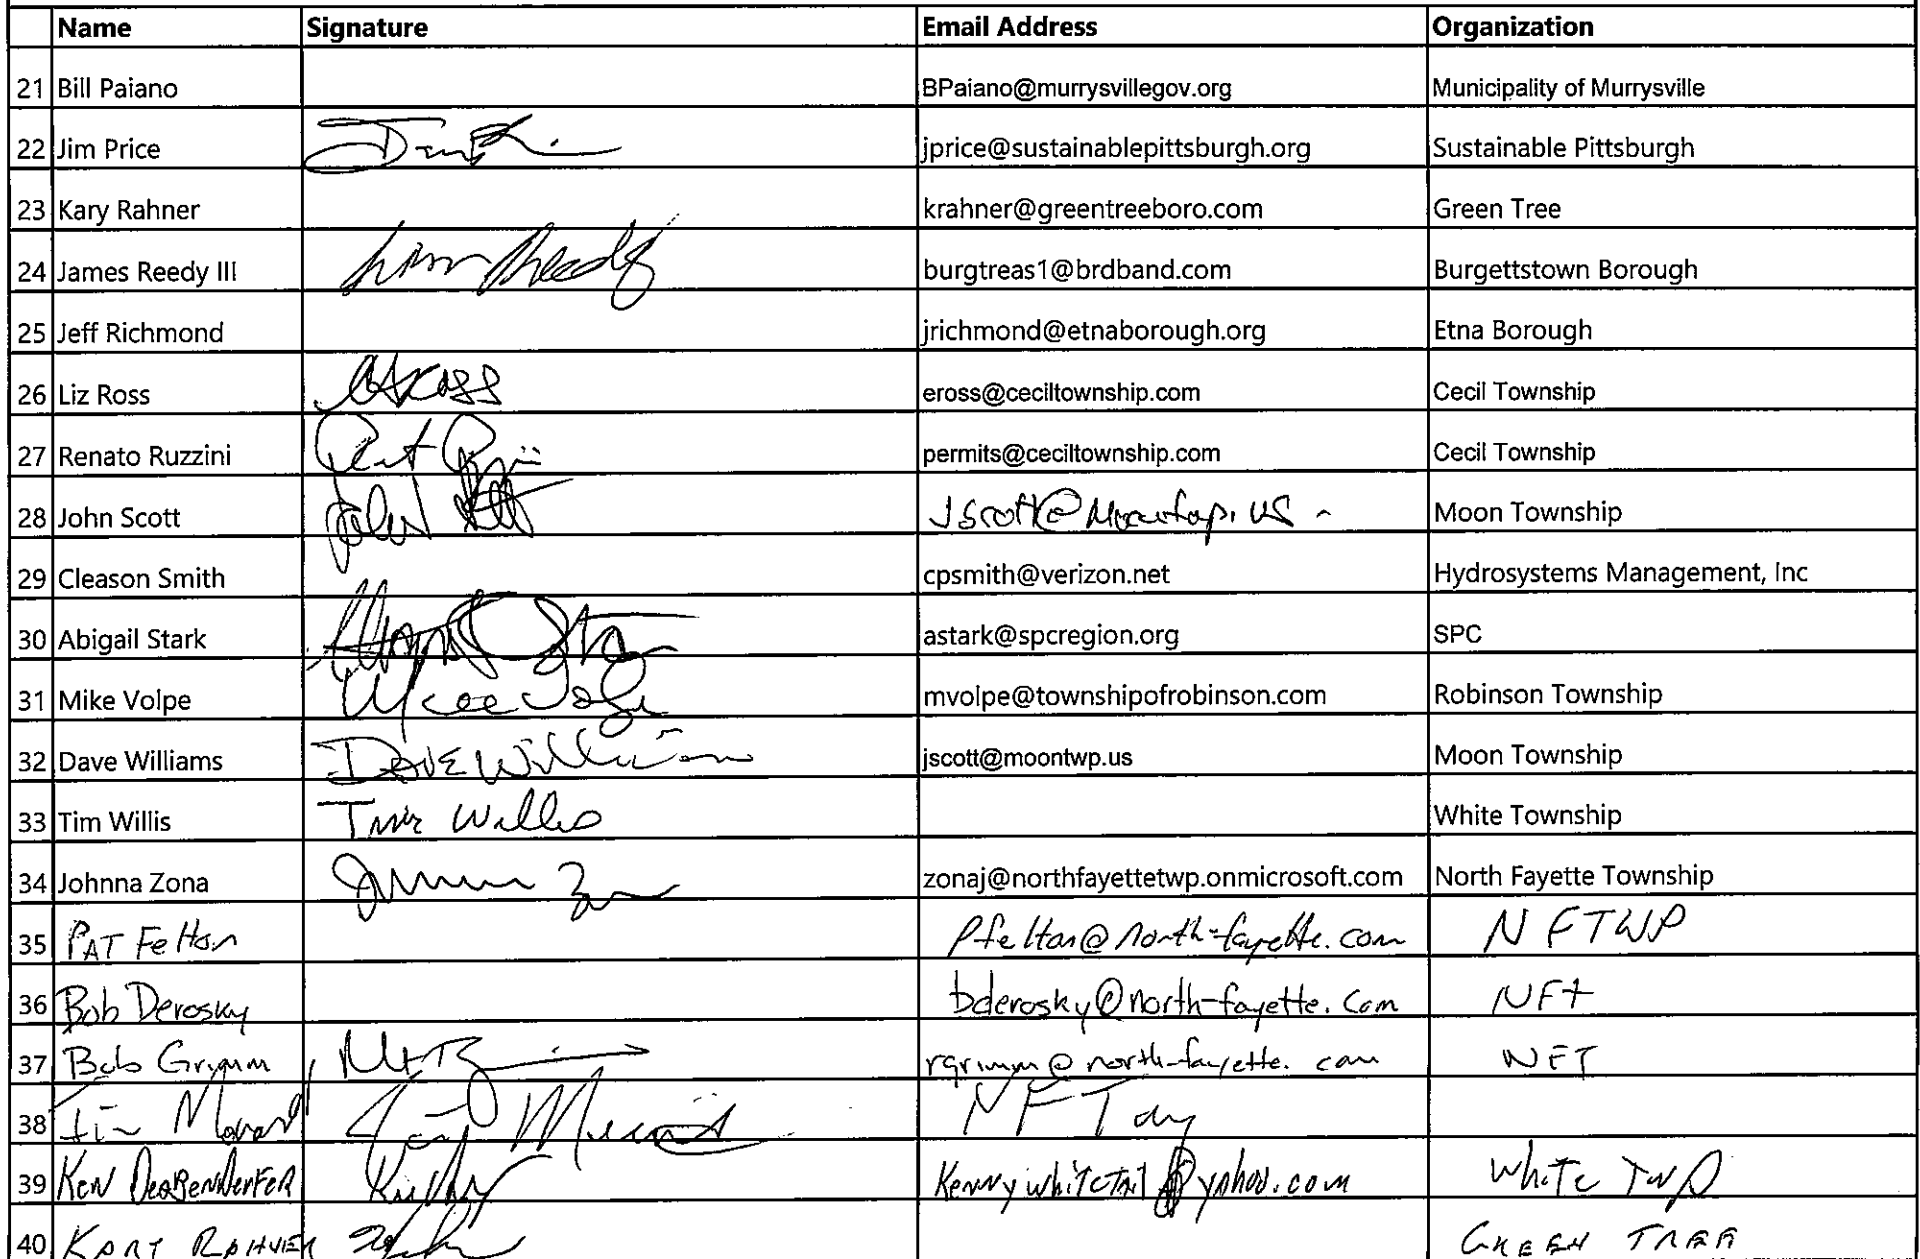 Name Signature Email Address Organization
21 Bill Paiano BPaiano@murrysvillegov.org Municipality of Murrysville
22 Jim Price jprice@sustainablepittsburgh.org Sustainable Pittsburgh
23 Kary Rahner krahner@greentreeboro.com Green Tree
24 James Reedy III burgtreas1@brdband.com Burgettstown Borough
25 Jeff Richmond jrichmond@etnaborough.org Etna Borough
26 Liz Ross eross@ceciltownship.com Cecil Township
27 Renato Ruzzini permits@ceciltownship.com Cecil Township
28 John Scott John Scott Moon Township
29 Cleason Smith cpsmith@verizon.net Hydrosystems Management, Inc
30 Abigail Stark astark@spcregion.org SPC
31 Mike Volpe mvolpe@townshipofrobinson.com Robinson Township
32 Dave Williams Dave Williams jscott@moontwp.us Moon Township
33 Tim Willis Tim Willis White Township
34 Johnna Zona zonaj@northfayettetwp.onmicrosoft.com North Fayette Township
35 PAT Felton Pfelton@north-fayette.com NFTWP
36 Bob Derosky bderosky@north-fayette.com NFT
37 Bob Grimm rgrimm@north-fayette.com NFT
38
39 Ken Kennywhitetail@yahoo.com White Twp
40 GREEN TREE